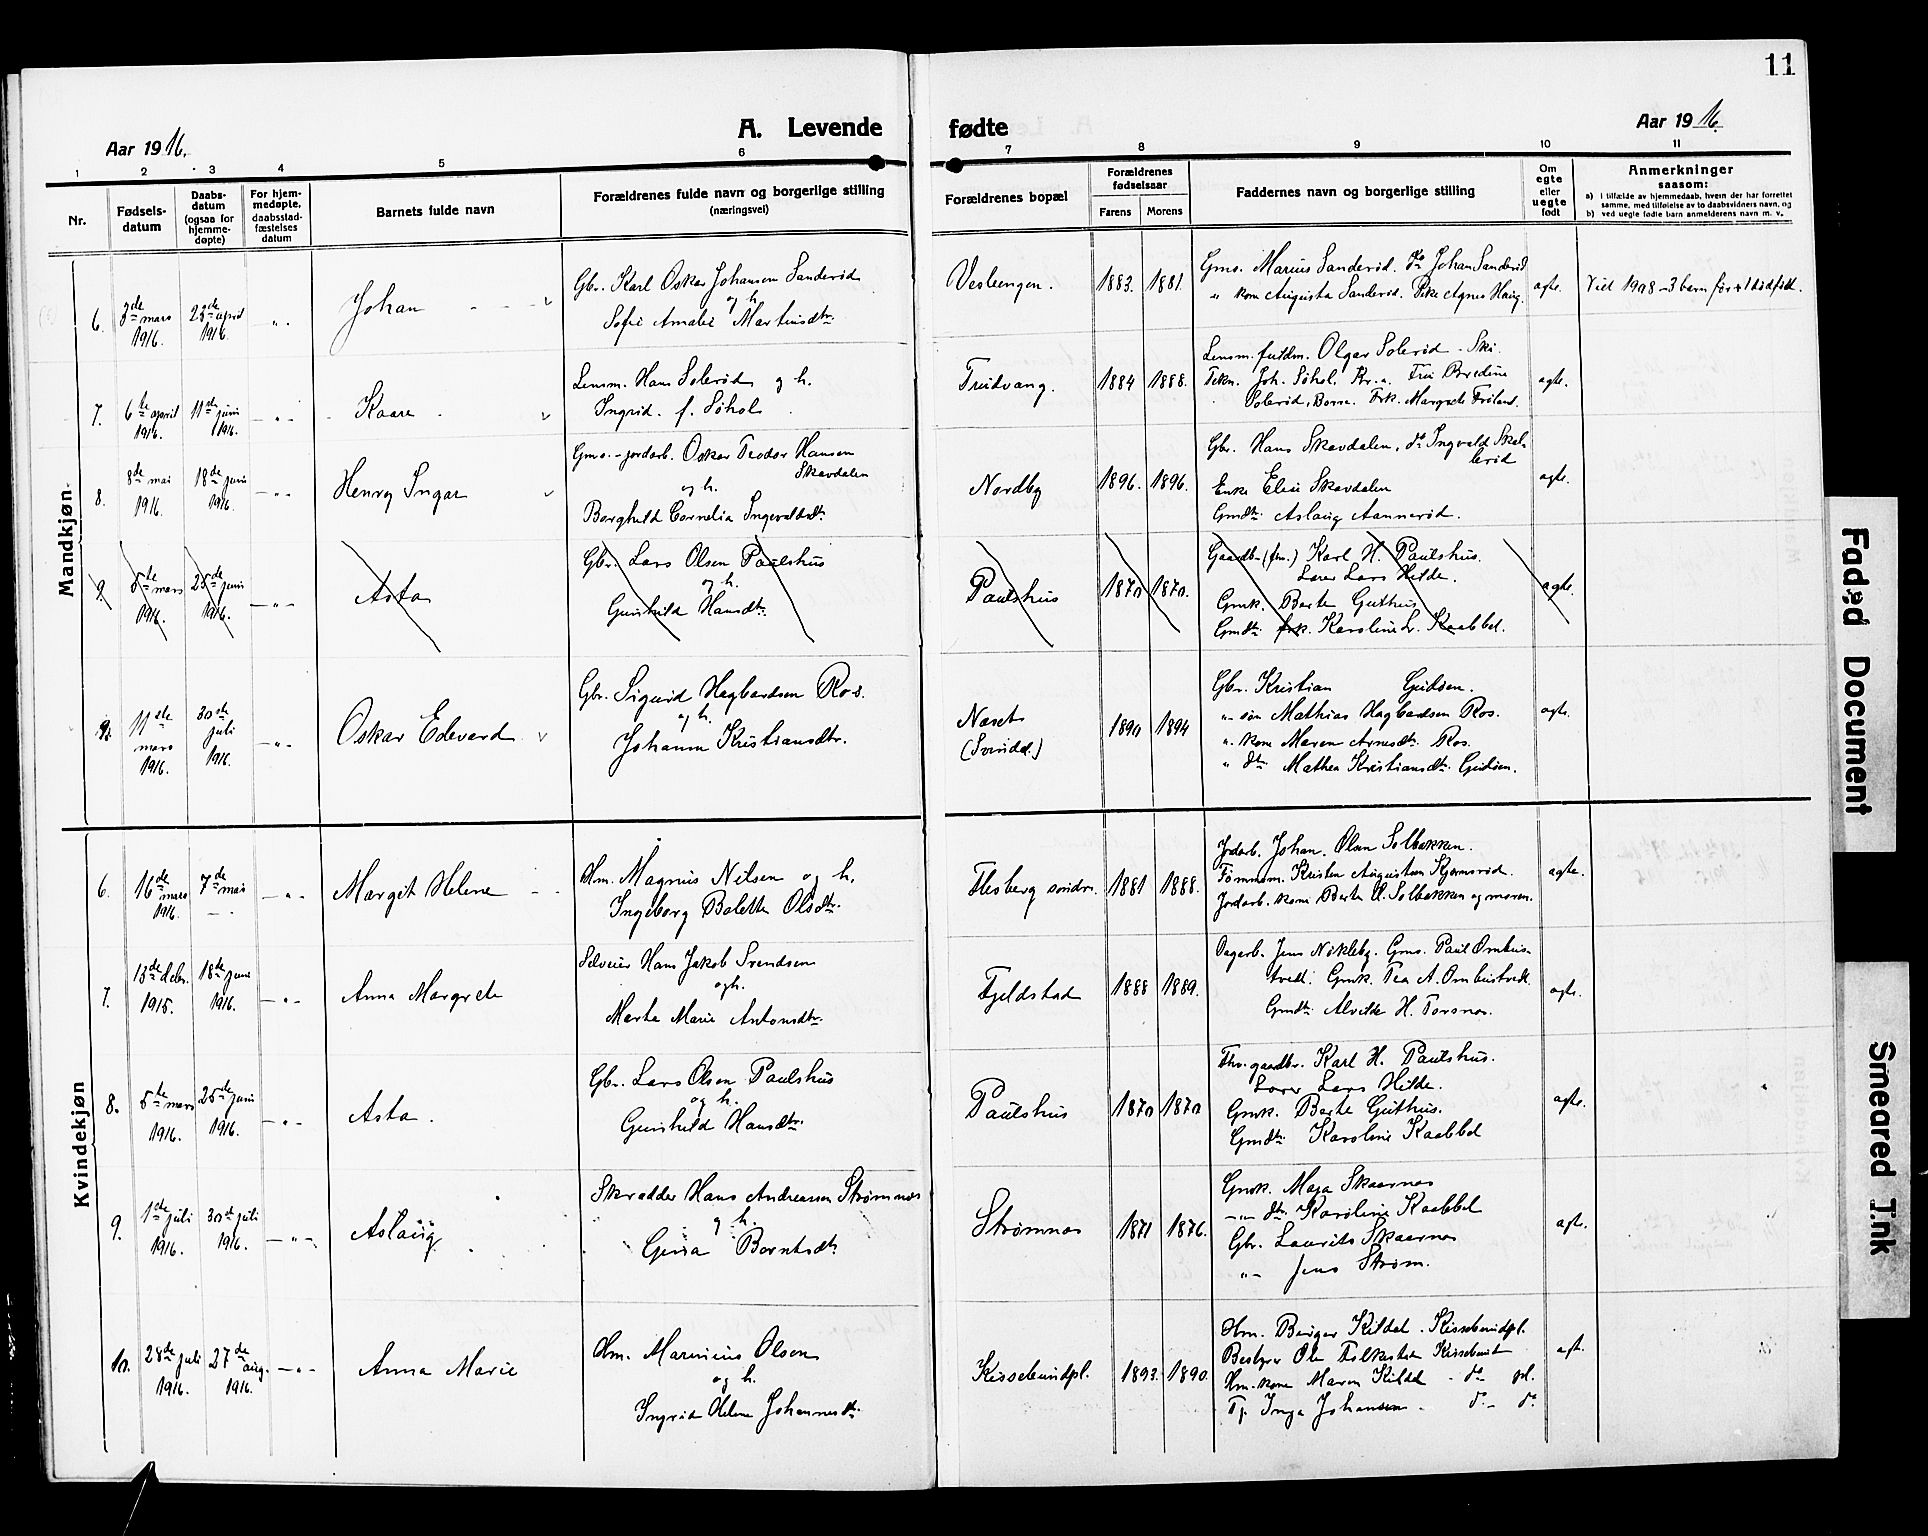 11
A. Levende fødte
Aar 1916.
Aar 1916.
1 2 3 4 5 6 7 8 9 10 11
Nr.
Fødsels-
datum
Daabs-
datum
(ogsaa for
hjemme-
døpte)
For hjem-
medøpte,
daabsstad-
fæstelses
datum
Barnets fulde navn
Forældrenes fulde navn og borgerlige stilling
(næringsvei)
Forældrenes bopæl
Forældrenes
fødselsaar
Farens Morens
Faddernes navn og borgerlige stilling
Om
egte
eller
uegte
født
Anmerkninger
saasom:
a) i tilfælde av hjemmedaab, hvem der har forrettet
samme, med tilføielse av to daabsvidners navn, og
b) ved uegte fødte barn anmelderens navn m. v.
Mandkjøn
6. 3de mars 1916. 23de april 1916. -„- Johan
Gbr. Karl Oskar Johansen Sanderød
og h.
Sofie Amalie Martinsdtr.
1883. 1881.
Gms. Marius Sanderød. do Johan Sanderød
„ kone Augusta Sanderød. Pike Agnes Haug.
ægte.
Viet 1908 - 3 barn før 1 dødfødt.
7. 6te april 1916. 11te juni 1916. -„- Kaare
Lensm. Hans Solerød og h.
Ingrid f. Søhol
1884 1888.
Lensm. fuldm. Olgar Solerød - Ski.
Tekn. Joh. Søhol.
Solerød, Borre. Frk. Margrete Friland.
ægte.
8. 8de mai 1916. 18de juni 1916. -„- Henry Ingar
Gms.-jordarb. Oskar Teodor Hansen
Skavdalen
og h.
Borghild Cornelia Ingevaldsdtr.
Nordby 1896. 1896.
Gbr. Hans Skavdalen, do Ingvald
Enke Elise Skavdalen
Gmdtr. Aslaug Aannerød.
ægte.
9. 5te mars 1916. 25de juni 1916. -„- Asta
Gbr. Lars Olsen Paulshus
og h.
Gunhild Hansdtr.
Paulshus 1870 1870.
Gaardbr. (fm.) Karl H. Paulshus.
Lærer Lars Hilde.
Gmk. Berte Guthus
Gmdtr. frk. Karoline Kaabbel.
ægte.
9. 11te mars 1916. 30te juli 1916. -„- Oskar Edevard
Gbr. Sigurd Hagbardsen Ros.
og h.
Johanne Kristiansdtr.
Næset
1890 1894
Gbr. Kristian Gudøen.
„ søn Mathias Hagbardsen Ros.
„ kone Maren Arnesdtr. Ros.
„ dtr. Mathea Kristiansdtr. Gudøen.
ægte.
Kvindekjøn
6. 16de mars 1916. 7de mai -„- Margit Helene
Hm. Magnus Nilsen og h.
Ingeborg Bolette Olsdtr.
Flesberg søndre. 1881 1888.
Jordarb. Johan Olsen Solbakken.
Tømmerm. Kristen Augustsen Kjærnsrød.
Jordarb. kone Berte O. Solbakken og moren.
ægte.
7. 13de debr. 1915. 18de juni 1916. -„- Anna Margrete
Selveier Hans Jakob Svendsen
og h.
Marte Marie Antonsdtr.
Fjeldstad 1888 1889.
Dagarb. Jens Nikleby. Gms. Paul Ombus-
tvedt. Gmk. Tea A. Ombustvedt.
Gmdtr. Alvilde H. Torsnes.
ægte.
8. 5te mars 1916. 25de juni 1916. -„- Asta.
Gbr. Lars Olsen Paulshus
og h.
Gunhild Hansdtr.
Paulshus 1870 1870
Fhv. gaardbr. Karl H. Paulshus.
Lærer Lars Hilde.
Gmk. Berte Guthus.
Gmdtr. Karoline Kaabbel
ægte.
9. 1de juli 1916. 30te juli 1916. -„- Aslaug
Skrædder Hans Andreassen Strømnes
og h.
Gina Berntsdtr.
Strømnes 1871 1876.
Gmk. Maja Skaarnes
-„- dtr. Karoline Kaabbel
Gbr. Laurits Skaarnes
„- Jens Strøm.
ægte.
10. 28de juli 1916. 27de aug. 1916. -„- Anna Marie
Hm. Marinius Olsen
og h.
Ingrid Helene Johannesdtr.
Kissebundpl. 1893. 1890.
Hm. Birger Kildal. Kissebundpl.
Bestyrer Ole Folkestad Kissebund
Hm. kone Maren Kildal - do pl.
Tj. Inga Johansen - do - do
ægte.
Faded Document
Smeared Ink